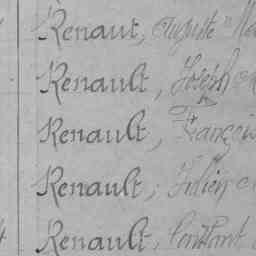 Renaut, Auguste
Renault, Joseph
Renault, François
Renault, Julien
Renault, Constant